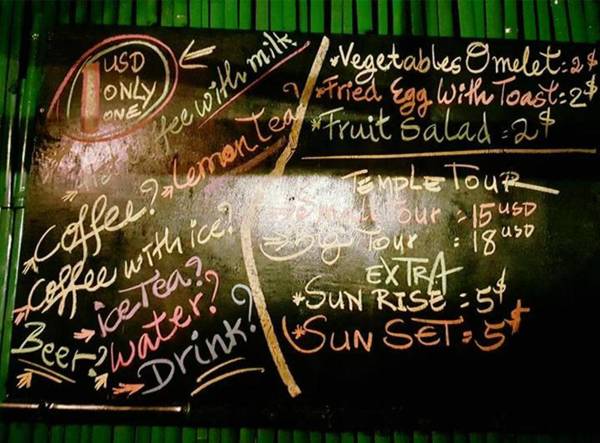 1 USD
ONLY
ONE
Coffee with milk
*Lemon Tea?
Coffee?
Coffee with ice?
ice Tea?
Water?
Beer?
Drink?
*Vegetables Omelet: 2$
*Fried Egg With Toast: 2$
*Fruit Salad: 2$
TEMPLE TOUR
Small Tour : 15 USD
Big Tour : 18 USD
EXTRA
*SUN RISE : 5$
*SUN SET : 5$